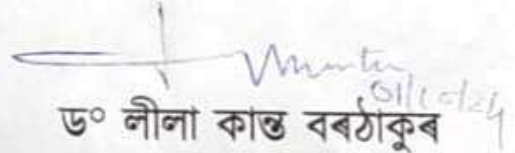 01/10/24
ড° লীলা কান্ত বৰঠাকুৰ